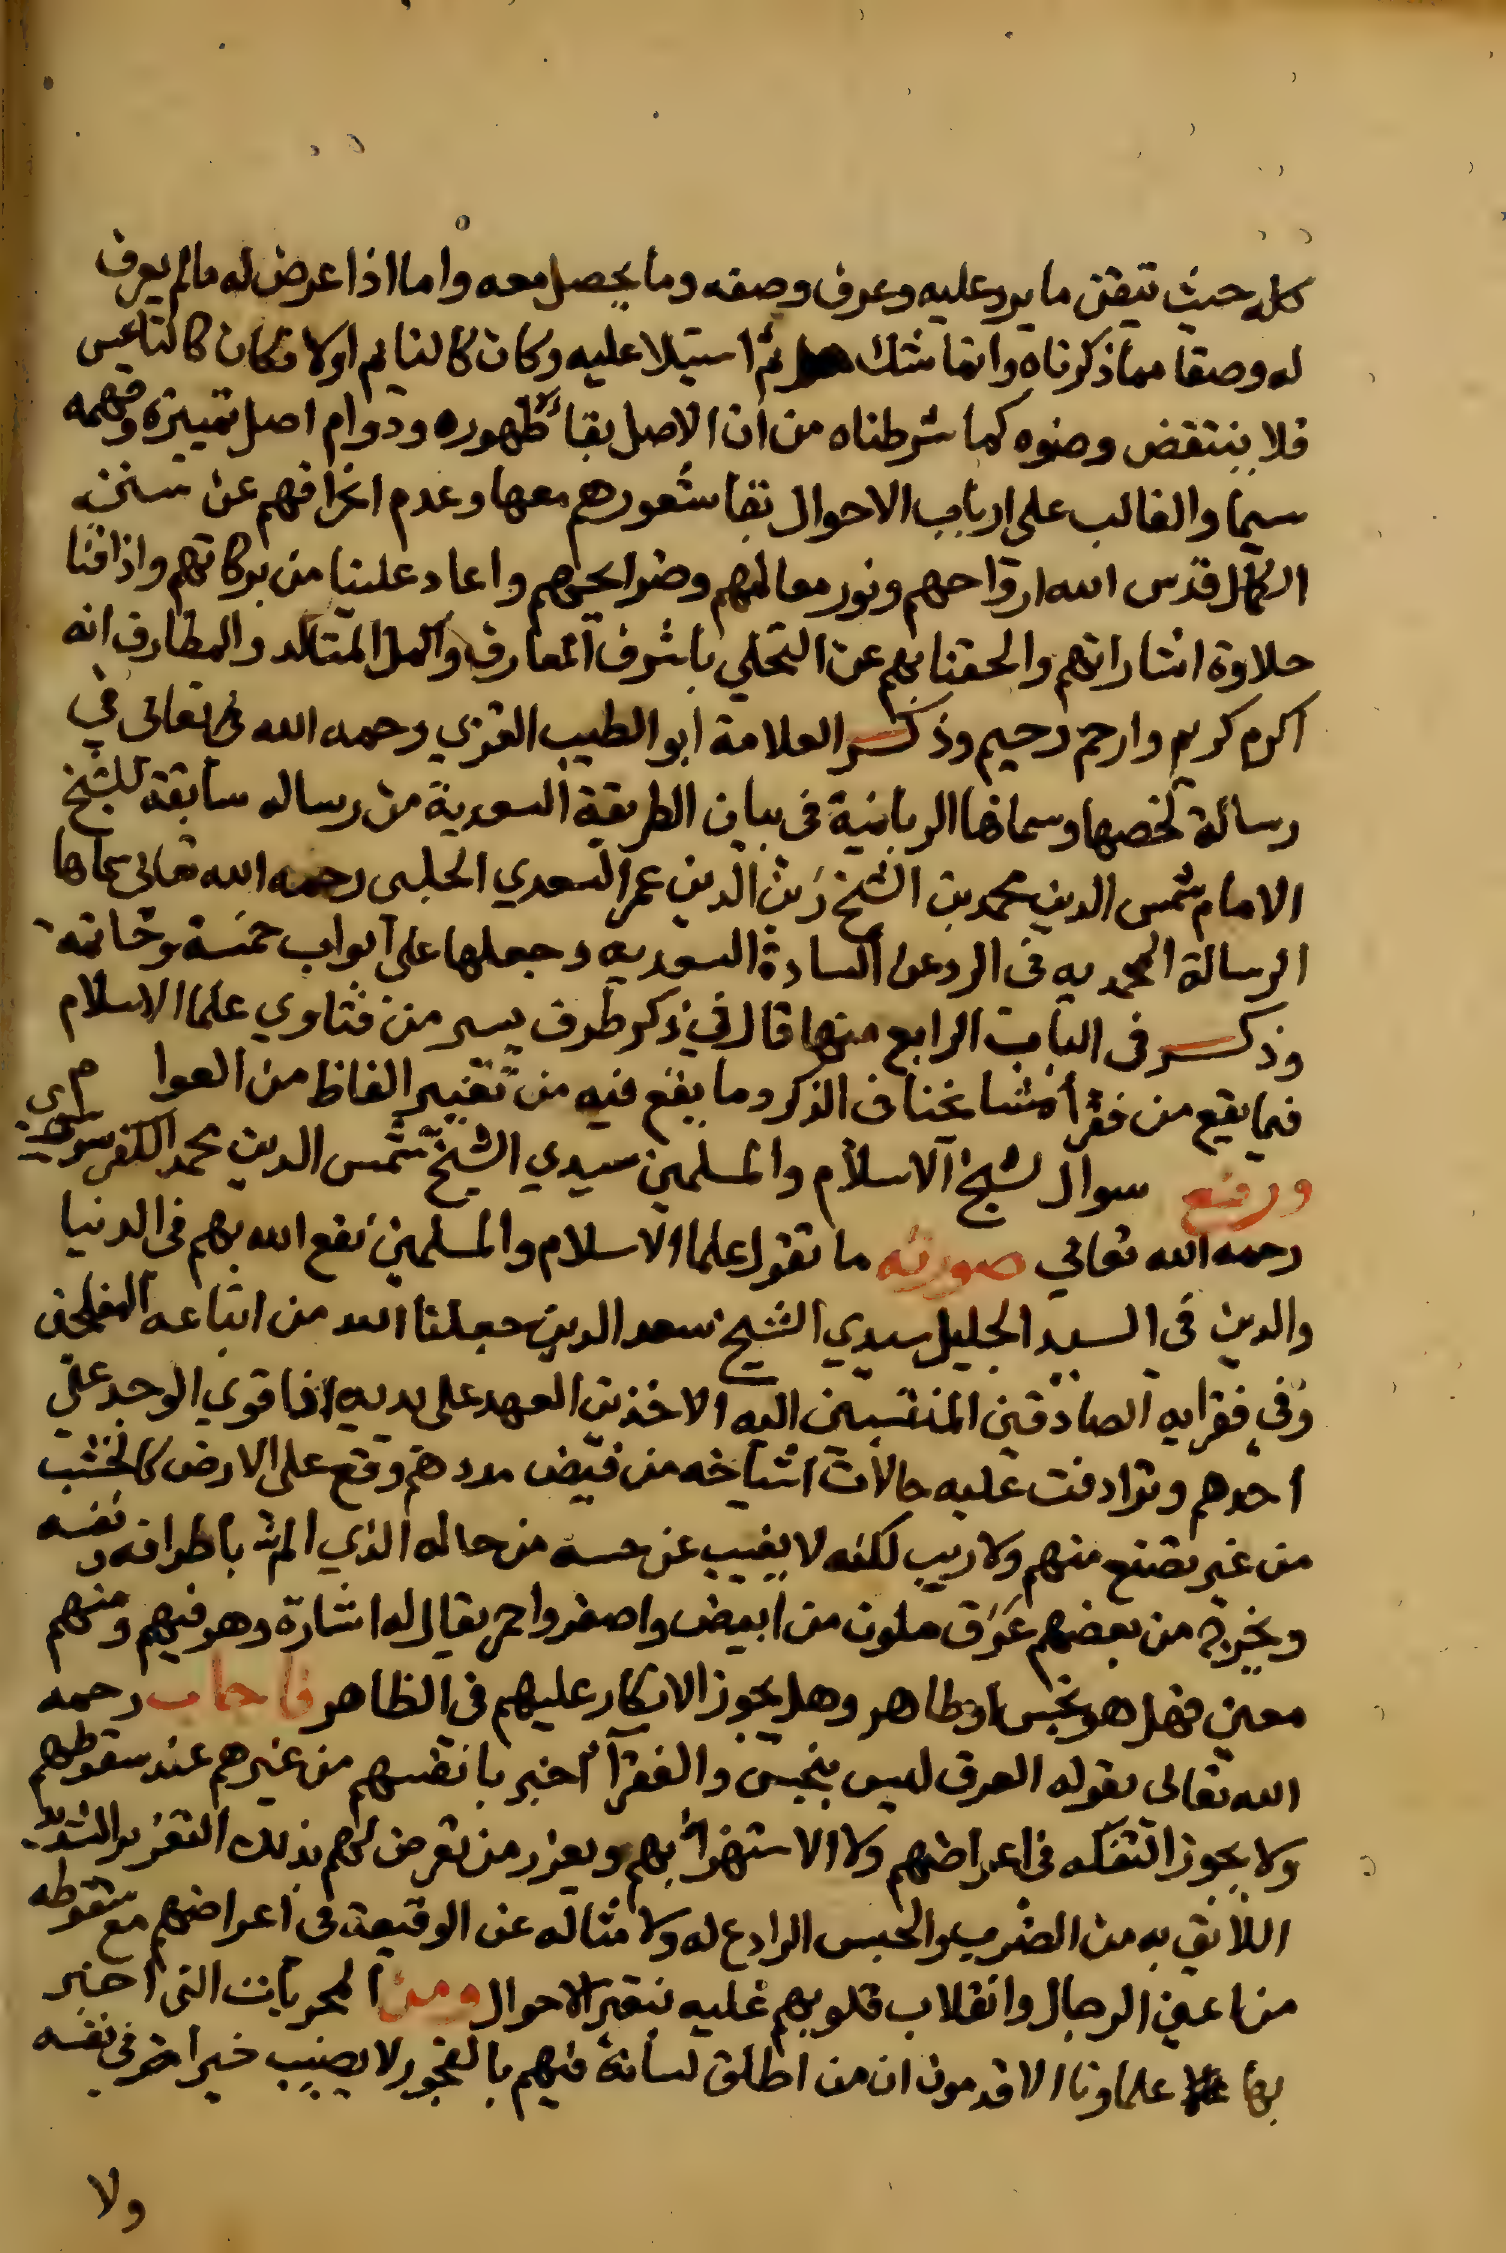 كله حيث تيقن ما يرد عليه وعرف وصفه وما يحصل معه واما اذا عرض له مالم يعرف
له وصفا مما ذكرناه وانما شك ثم استيلا عليه وكان كالنايم اولا فكان كالناعيس
فلا ينتقض وضوه كما شرطناه من أن الاصل بقاء ظهوره ودوام اصل تمييزه وفهمه
سيما والغالب على ارباب الاحوال بقا شعورهم معها وعدم انحرافهم عن سنن
الكمل قدس الله ارواحهم ونور معالمهم وضرايحهم واعاد علينا من بركاتهم واذاقنا
حلاوة اشاراتهم والحقنا بهم عن التحلي باشرف المعارف واكمل المتالد والمطارف انه
اكرم كريم وارحم رحيم وذكر العلامة ابو الطيب الغزي رحمه الله تعالى في
رسالة لخصها وسماها الربانية في بيان الطريقة السعدية من رساله سابقة للشيخ
الامام شمس الدين محمد بن الشيخ زين الدين عمر السعدي الحلبى رحمه الله تعالى سماها
الرسالة المحمديه فى الرد عن السادة السعديه وجعلها على ابواب خمسة وخاتمة
وذكر فى الباب الرابع منها قال في ذكر طرف يسير من فتاوي علما الاسلام
فيما يقع من فقرا مشايخنا في الذكر وما يقع فيه من تغيير الفاظ من العوام
ورفع سوال لشيخ الاسلام والمسلمين سيدي الشيخ شمس الدين محمد الكفرسوسي
رحمه الله تعالي صورته ما تقول علما الاسلام والمسلمين نفع الله بهم في الدنيا
والدين فى السيد الجليل سيدي الشيخ سعد الدين جعلنا الله من اتباعه المفلحين
وفي فقرايه الصادقين المنتسبين اليه الاخذين العهد على يديه اذا قوي الوجد على
احدهم وترادفت عليه حالات اشياخه من فيض مددهم وقع على الارض كالخشب
من غير تصنع منهم ولا ريب لكنه لا يغيب عن حسه من حاله الذي الم باطرافه ونفسه
ويخرج من بعضهم عرق ملون من ابيض واصفر واحمر يقال له اشارة وهو فيهم ومنهم
معين فهل هو نجس او طاهر وهل يجوز الانكار عليهم في الظاهر فاجاب رحمه
الله تعالى بقوله العرق ليس بنجس والفقرآء اخبر بانفسهم من غيرهم عند سقوطهم
ولا يجوز التفكه فى اعراضهم ولا الاستهزاء بهم ويعزر من تعرض لهم بذلك التعزير الشديد
اللائق به من الضرب والحبس الرادع له ولامثاله عن الوقيعة فى اعراضهم مع سقوطه
من اعين الرجال وانقلاب قلوبهم عليه بتغير الاحوال ومن المجربات التى اخبر
بها علماونا الاقدمون ان من اطلق لسانه فيهم بالفجور لا يصيب خيرا فى نفسه
ولا